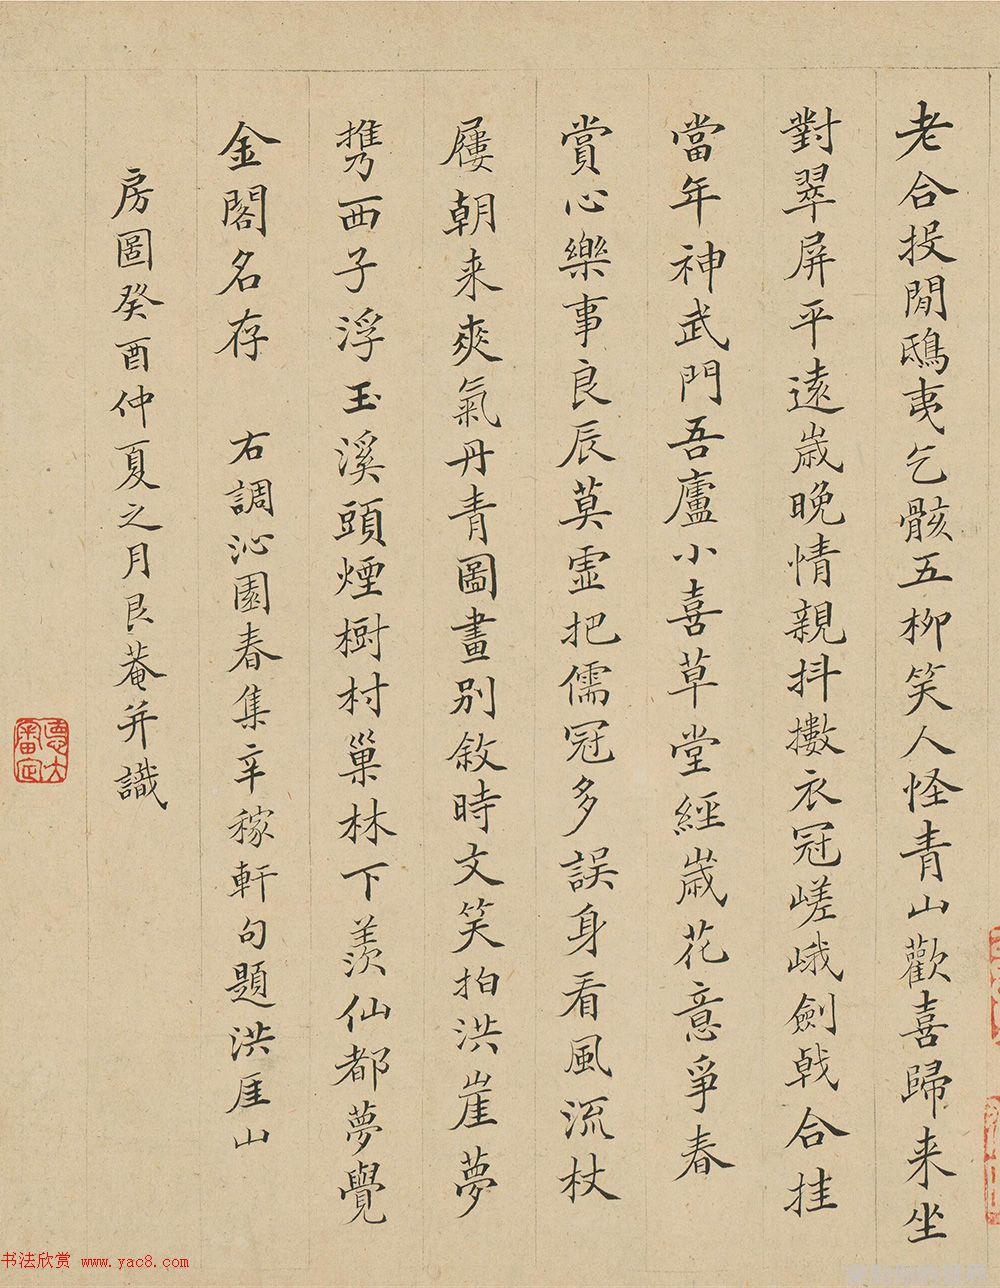 老合投閒鴟夷乞骸五柳笑人怪青山歡喜歸来坐
對翠屏平遠歲晚情親抖擻衣冠嵯峨劍戟合挂
當年神武門吾廬小喜草堂經歲花意爭春
賞心樂事良辰莫虛把儒冠多誤身看風流杖
屨朝来爽氣丹青圖畫别敘時文笑拍洪崖夢
携西子浮玉溪頭煙樹村巢林下羨仙都夢覺
金閣名存　右調沁園春集辛稼軒句題洪厓山
房圖癸酉仲夏之月艮菴并識
德大審定
书法欣赏 www.yac8.com